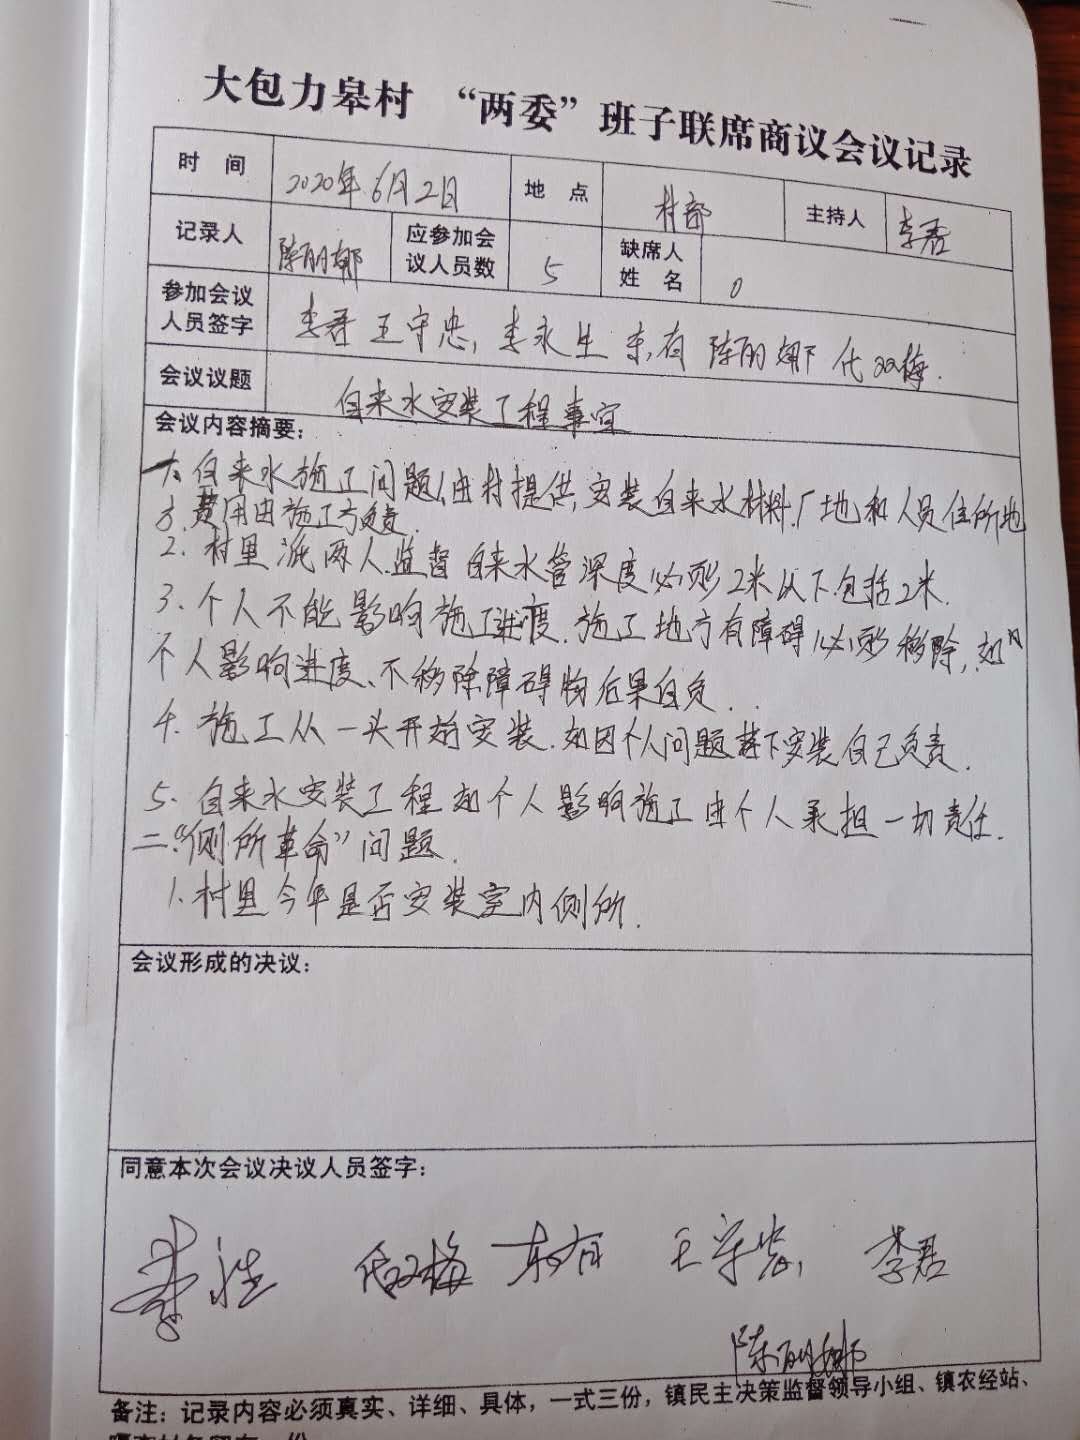 大包力皋村 “两委”班子联席商议会议记录
时 间 2020年6月2日 地 点 村部 主持人 李君
记录人 陈丽娜 应参加会议人员数 5 缺席人姓名 0
参加会议人员签字 李君 王守忠, 李永生 东有 陈丽娜 代双梅.
会议议题 自来水安装工程事宜
会议内容摘要:
一、自来水施工问题 1、由村提供,安装自来水材料厂地和人员住所地
方. 费用由施工方负责.
2. 村里派两人监督自来水管深度必须2米以下包括2米.
3. 个人不能影响施工进度. 施工地方有障碍必须移除,如因
个人影响进度、不移除障碍物后果自负.
4. 施工从一头开始安装. 如因个人问题落下安装自己负责.
5. 自来水安装工程如个人影响施工由个人承担一切责任.
二.“侧所革命”问题.
1. 村里今年是否安装室内侧所.
会议形成的决议:
同意本次会议决议人员签字:
代双梅 东有 王守忠 李君
陈丽娜
备注: 记录内容必须真实、详细、具体，一式三份，镇民主决策监督领导小组、镇农经站、